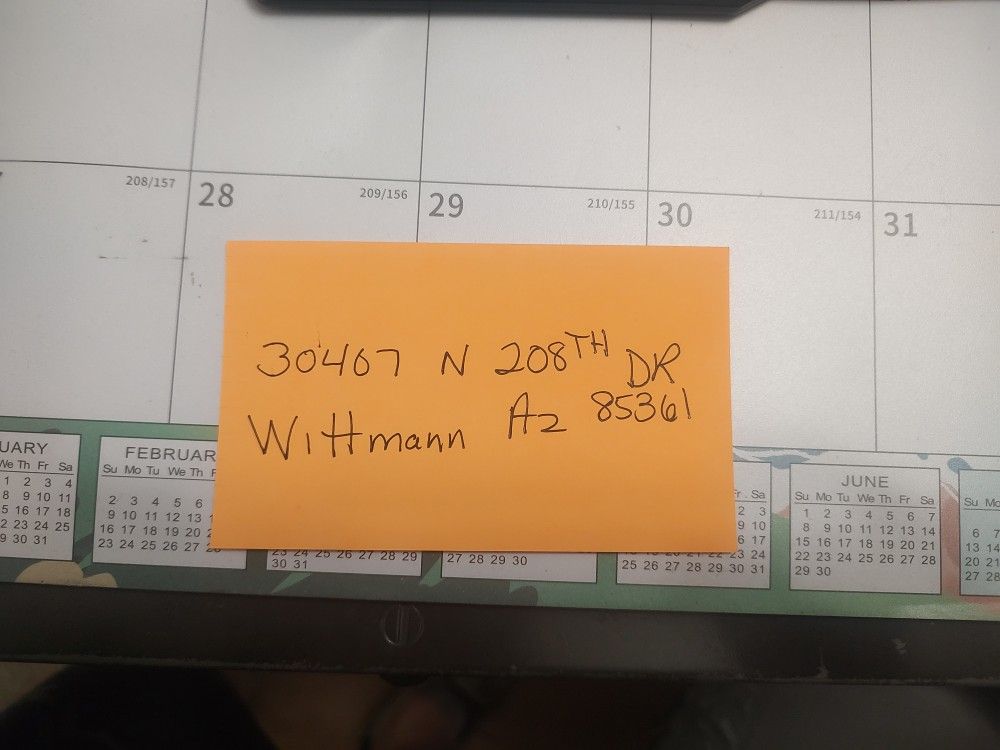 208/157
28
209/156
29
210/155
30
211/154
31
30467 N 208TH DR
Wittmann Az 85361
UARY
We Th Fr Sa
1 2 3 4
8 9 10 11
5 16 17 18
2 23 24 25
9 30 31
FEBRUAR
Su Mo Tu We Th F
2 3 4 5 6
9 10 11 12 13 1
16 17 18 19 20
23 24 25 26 27 28
23 24 25 26 27 28 29
30 31
27 28 29 30
Fr Sa
2 3
9 10
6 17
18 19 20 21 22 23 24
25 26 27 28 29 30 31
JUNE
Su Mo Tu We Th Fr Sa
1 2 3 4 5 6 7
8 9 10 11 12 13 14
15 16 17 18 19 20 21
22 23 24 25 26 27 28
29 30
Su Mo
6 7
13 14
20 21
27 28